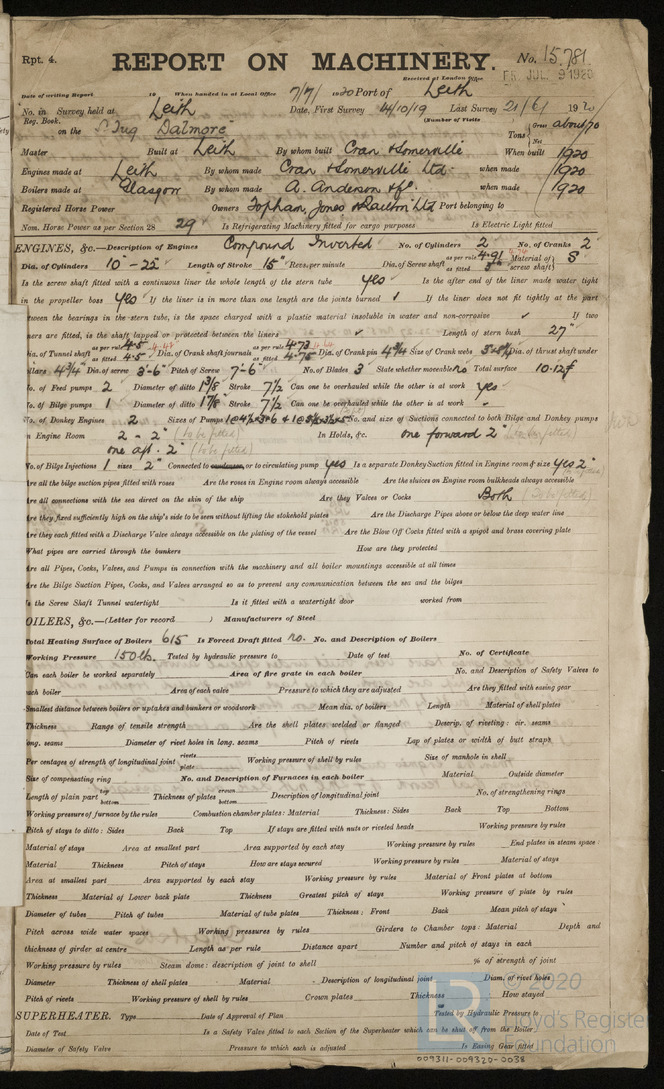 Rpt. 4.
REPORT ON MACHINERY.
No. 15,781
Received at London Office
9 JUL. 1920
Date of writing Report 19 When handed in at Local Office 7/7/1920 Port of Leith
No. in Survey held at Leith Date, First Survey 14/10/19 Last Survey 21/6/1920
Reg. Book.
(Number of Visits
on the S. Tug Dalmore Tons Gross about 70 Net
Master Built at Leith By whom built Cran & Somerville When built 1920
Engines made at Leith By whom made Cran & Somerville Ltd. when made 1920
Boilers made at Glasgow By whom made A. Anderson & Co. when made 1920
Registered Horse Power Owners Topham, Jones & Railton Ltd Port belonging to
Nom. Horse Power as per Section 28 29 Is Refrigerating Machinery fitted for cargo purposes Is Electric Light fitted
ENGINES, &c.—Description of Engines Compound Inverted No. of Cylinders 2 No. of Cranks 2
Dia. of Cylinders 10"-22" Length of Stroke 15" Revs. per minute Dia. of Screw shaft as per rule 4.91 as fitted 5" Material of screw shaft S
Is the screw shaft fitted with a continuous liner the whole length of the stern tube yes Is the after end of the liner made water tight
in the propeller boss yes If the liner is in more than one length are the joints burned If the liner does not fit tightly at the part
between the bearings in the stern tube, is the space charged with a plastic material insoluble in water and non-corrosive If two
liners are fitted, is the shaft lapped or protected between the liners Length of stern bush 27"
Dia. of Tunnel shaft as per rule 4.5 as fitted 4.5 Dia. of Crank shaft journals as per rule 4.73 as fitted 4.75 Dia. of Crank pin 4 3/4 Size of Crank webs Dia. of thrust shaft under
collars 4 3/4 Dia. of screw 3'-6" Pitch of Screw 7'-6" No. of Blades 3 State whether moveable no Total surface 10.12 f
No. of Feed pumps 2 Diameter of ditto 1 3/8" Stroke 7 1/2 Can one be overhauled while the other is at work yes
No. of Bilge pumps 1 Diameter of ditto 1 7/8" Stroke 7 1/2 Can one be overhauled while the other is at work
No. of Donkey Engines 2 Sizes of Pumps No. and size of Suctions connected to both Bilge and Donkey pumps
in Engine Room 2 - 2" (to be fitted) In Holds, &c. one forward 2"
one aft. 2" (to be fitted)
No. of Bilge Injections 1 sizes 2" Connected to condenser, or to circulating pump yes Is a separate Donkey Suction fitted in Engine room & size yes 2"
Are all the bilge suction pipes fitted with roses Are the roses in Engine room always accessible Are the sluices on Engine room bulkheads always accessible
Are all connections with the sea direct on the skin of the ship Are they Valves or Cocks Both (to be fitted)
Are they fixed sufficiently high on the ship's side to be seen without lifting the stokehold plates Are the Discharge Pipes above or below the deep water line
Are they each fitted with a Discharge Valve always accessible on the plating of the vessel Are the Blow Off Cocks fitted with a spigot and brass covering plate
What pipes are carried through the bunkers How are they protected
Are all Pipes, Cocks, Valves, and Pumps in connection with the machinery and all boiler mountings accessible at all times
Are the Bilge Suction Pipes, Cocks, and Valves arranged so as to prevent any communication between the sea and the bilges
Is the Screw Shaft Tunnel watertight Is it fitted with a watertight door worked from
BOILERS, &c.—(Letter for record ) Manufacturers of Steel
Total Heating Surface of Boilers 615 Is Forced Draft fitted no. No. and Description of Boilers
Working Pressure 150 lb. Tested by hydraulic pressure to Date of test No. of Certificate
Can each boiler be worked separately Area of fire grate in each boiler No. and Description of Safety Valves to
each boiler Area of each valve Pressure to which they are adjusted Are they fitted with easing gear
Smallest distance between boilers or uptakes and bunkers or woodwork Mean dia. of boilers Length Material of shell plates
Thickness Range of tensile strength Are the shell plates welded or flanged Descrip. of riveting: cir. seams
long. seams Diameter of rivet holes in long. seams Pitch of rivets Lap of plates or width of butt straps
Per centages of strength of longitudinal joint rivets plate Working pressure of shell by rules Size of manhole in shell
Size of compensating ring No. and Description of Furnaces in each boiler Material Outside diameter
Length of plain part top bottom Thickness of plates crown bottom Description of longitudinal joint No. of strengthening rings
Working pressure of furnace by the rules Combustion chamber plates: Material Thickness: Sides Back Top Bottom
Pitch of stays to ditto: Sides Back Top If stays are fitted with nuts or riveted heads Working pressure by rules
Material of stays Area at smallest part Area supported by each stay Working pressure by rules End plates in steam space:
Material Thickness Pitch of stays How are stays secured Working pressure by rules Material of stays
Area at smallest part Area supported by each stay Working pressure by rules Material of Front plates at bottom
Thickness Material of Lower back plate Thickness Greatest pitch of stays Working pressure of plate by rules
Diameter of tubes Pitch of tubes Material of tube plates Thickness: Front Back Mean pitch of stays
Pitch across wide water spaces Working pressures by rules Girders to Chamber tops: Material Depth and
thickness of girder at centre Length as per rule Distance apart Number and pitch of stays in each
Working pressure by rules Steam dome: description of joint to shell % of strength of joint
Diameter Thickness of shell plates Material Description of longitudinal joint Diam. of rivet holes
Pitch of rivets Working pressure of shell by rules Crown plates Thickness How stayed
SUPERHEATER. Type Date of Approval of Plan Tested by Hydraulic Pressure to
Date of Test Is a Safety Valve fitted to each Section of the Superheater which can be shut off from the Boiler
Diameter of Safety Valve Pressure to which each is adjusted Is Easing Gear fitted
© 2020
Lloyd's Register
Foundation
009311-009320-0038